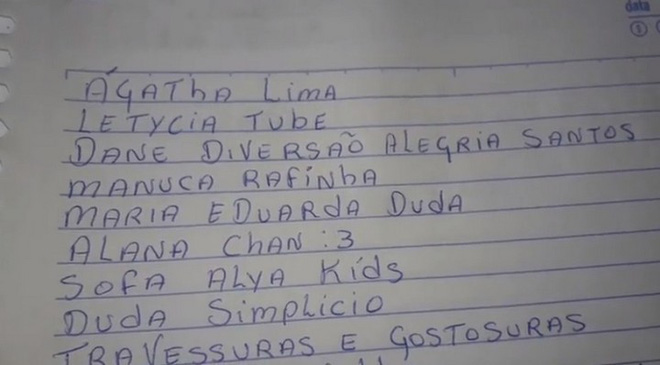 data
ÁGATHA LIMA
LETYCIA TUBE
DANE DIVERSÃO ALEGRIA SANTOS
MANUCA RAFINHA
MARIA EDUARDA DUDA
ALANA CHAN :3
SOFA ALYA KIDS
DUDA SIMPLICIO
TRAVESSURAS E GOSTOSURAS